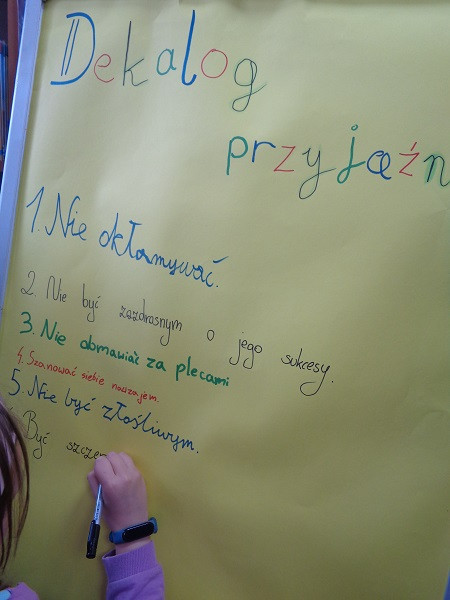 Dekalog
przyjaźn
1. Nie okłamywać.
2. Nie być zazdrosnym o jego sukcesy.
3. Nie obmawiać za plecami
4. Szanować siebie nawzajem.
5. Nie być złośliwym.
Być szcze